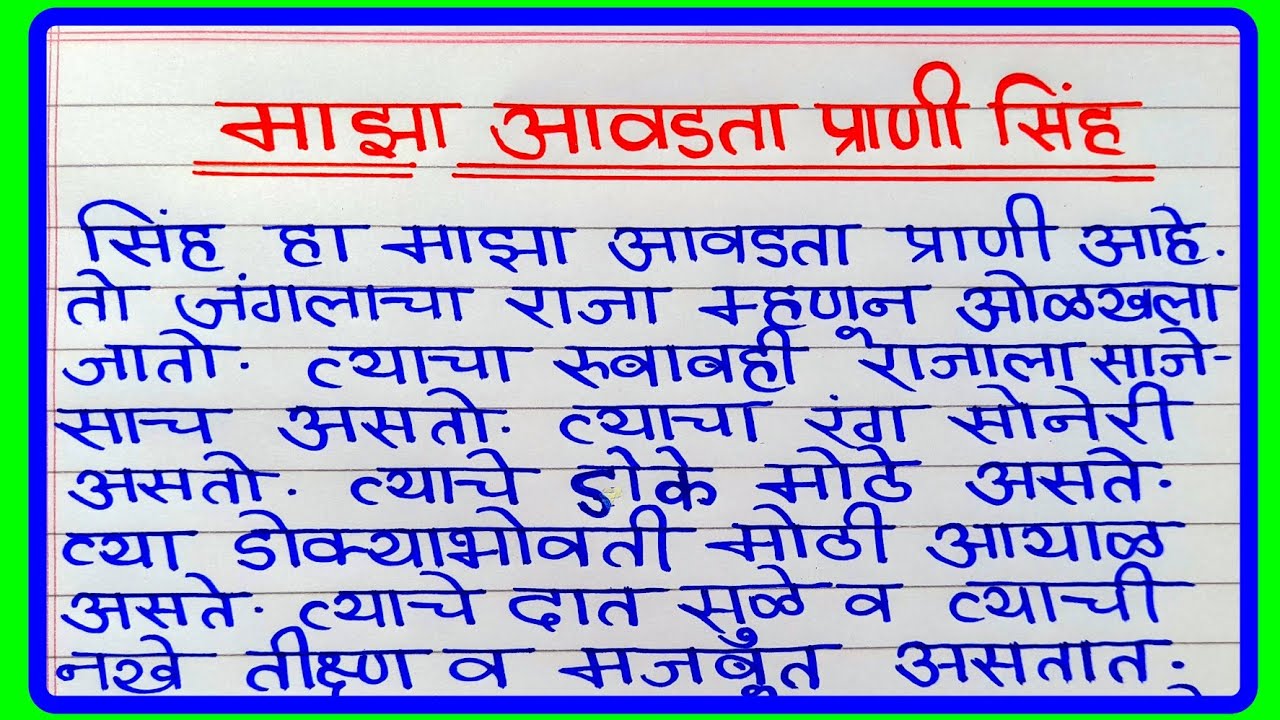 माझा आवडता प्राणी सिंह
सिंह हा माझा आवडता प्राणी आहे.
तो जंगलाचा राजा म्हणून ओळखला
जातो. त्याचा रुबाबही राजाला साजे-
साच असतो. त्याचा रंग सोनेरी
असतो. त्याचे डोके मोठे असते.
त्या डोक्याभोवती मोठी आयाळ
असते. त्याचे दात सुळे व त्याची
नखे तीक्ष्ण व मजबूत असतात.